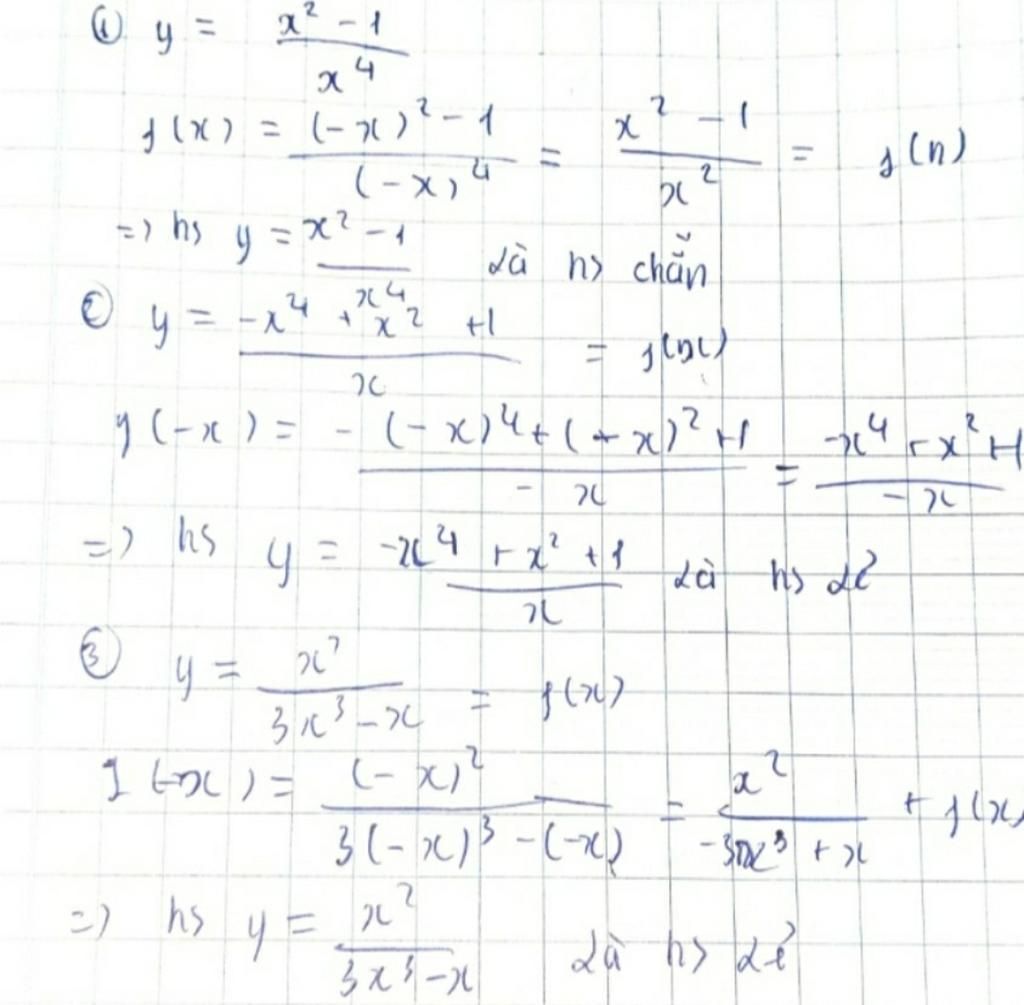 ① y = (x² - 1)/(x⁴)
f(x) = ((-x)² - 1)/((-x)⁴) = (x² - 1)/(x²) = f(n)
=> hs y = (x² - 1)/(x⁴) là hs chẵn
② y = (-x⁴ + x² + 1)/(x) = f(x)
y(-x) = - ((-x)⁴ + (-x)² + 1)/(-x) = (-x⁴ + x² + 1)/(-x)
=> hs y = (-x⁴ + x² + 1)/(x) là hs lẻ
③ y = (x²)/(3x³ - x) = f(x)
f(-x) = ((-x)²)/(3(-x)³ - (-x)) = (x²)/(-3x³ + x) + f(x)
=> hs y = (x²)/(3x³ - x) là hs lẻ